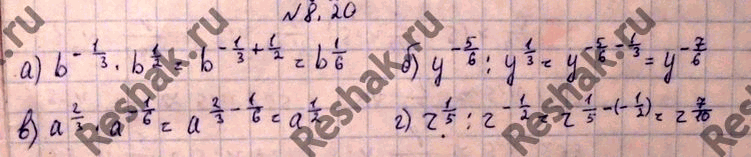 №8.20
а) b^{-1/3} · b^{1/2} = b^{-1/3+1/2} = b^{1/6} б) y^{-5/6} : y^{1/3} = y^{-5/6-1/3} = y^{-7/6}
в) a^{2/3} · a^{-1/6} = a^{2/3-1/6} = a^{1/2} г) z^{1/5} : z^{-1/2} = z^{1/5-(-1/2)} = z^{7/10}
Reshak.ru